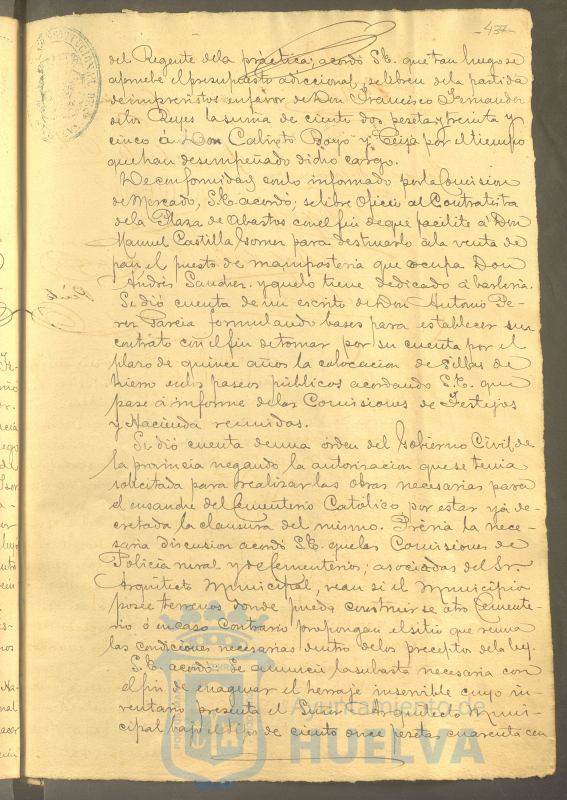 437
del Regente de la práctica; acordó S.E. que tan luego se
apruebe el presupuesto adiccional, se libren de la partida
de imprevistos en favor de Don Francisco Fernandez
de los Reyes la suma de ciento dos pesetas y treinta y
cinco á Don Calixto Bayo y Ceija por el tiempo
que han desempeñado dicho cargo.
De conformidad con lo informado por la Comision
de Mercado, S.E. acordó; se libre Oficio al Contratista
de la Plaza de Abastos con el fin de que facilite á Don
Manuel Castilla para destinarlo á la venta de
pan el puesto de mamposteria que ocupa Don
Andrés Sanchez y que lo tiene dedicado á barberia.
Se dió cuenta de un escrito de Don Antonio Pe-
rez Garcia formulando bases para establecer un
contrato con el fin de tomar por su cuenta por el
plazo de quince años la colocacion de sillas de
hierro en los paseos públicos acordando S.E. que
pase á informe de las Comisiones de Festejos
y Hacienda reunidas.
Se dió cuenta de una orden del Gobierno Civil de
la provincia negando la autorizacion que se tenia
solicitada para realizar las obras necesarias para
el ensanche del Cementerio Católico por estar yá de-
cretada la clausura del mismo. Prévia la nece-
saria discusion acordó S.E. que las Comisiones de
Policía rural y de Cementerios; asociadas del Sr.
Arquitecto Municipal, vean si el Municipio
posee terrenos donde pueda construirse otro Cemente-
rio ó en caso contrario propongan el sitio que reuna
las condiciones necesarias dentro de los preceptos de la ley.
S.E. acordó se anuncie la subasta necesaria con
el fin de enagenar el herraje inservible cuyo in-
ventario presenta el Señor Arquitecto Muni-
cipal bajo el tipo de ciento once pesetas cuarenta cen
Ayuntamiento de
HUELVA